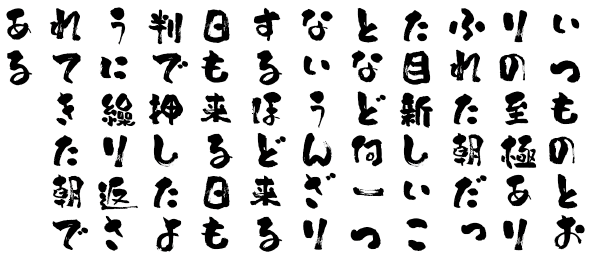 いつものとお
りの至極あり
ふれた朝だっ
た目新しいこ
となど何一つ
ないうんざり
するほど来る
日も来る日も
判で押したよ
うに繰り返さ
れてきた朝で
ある